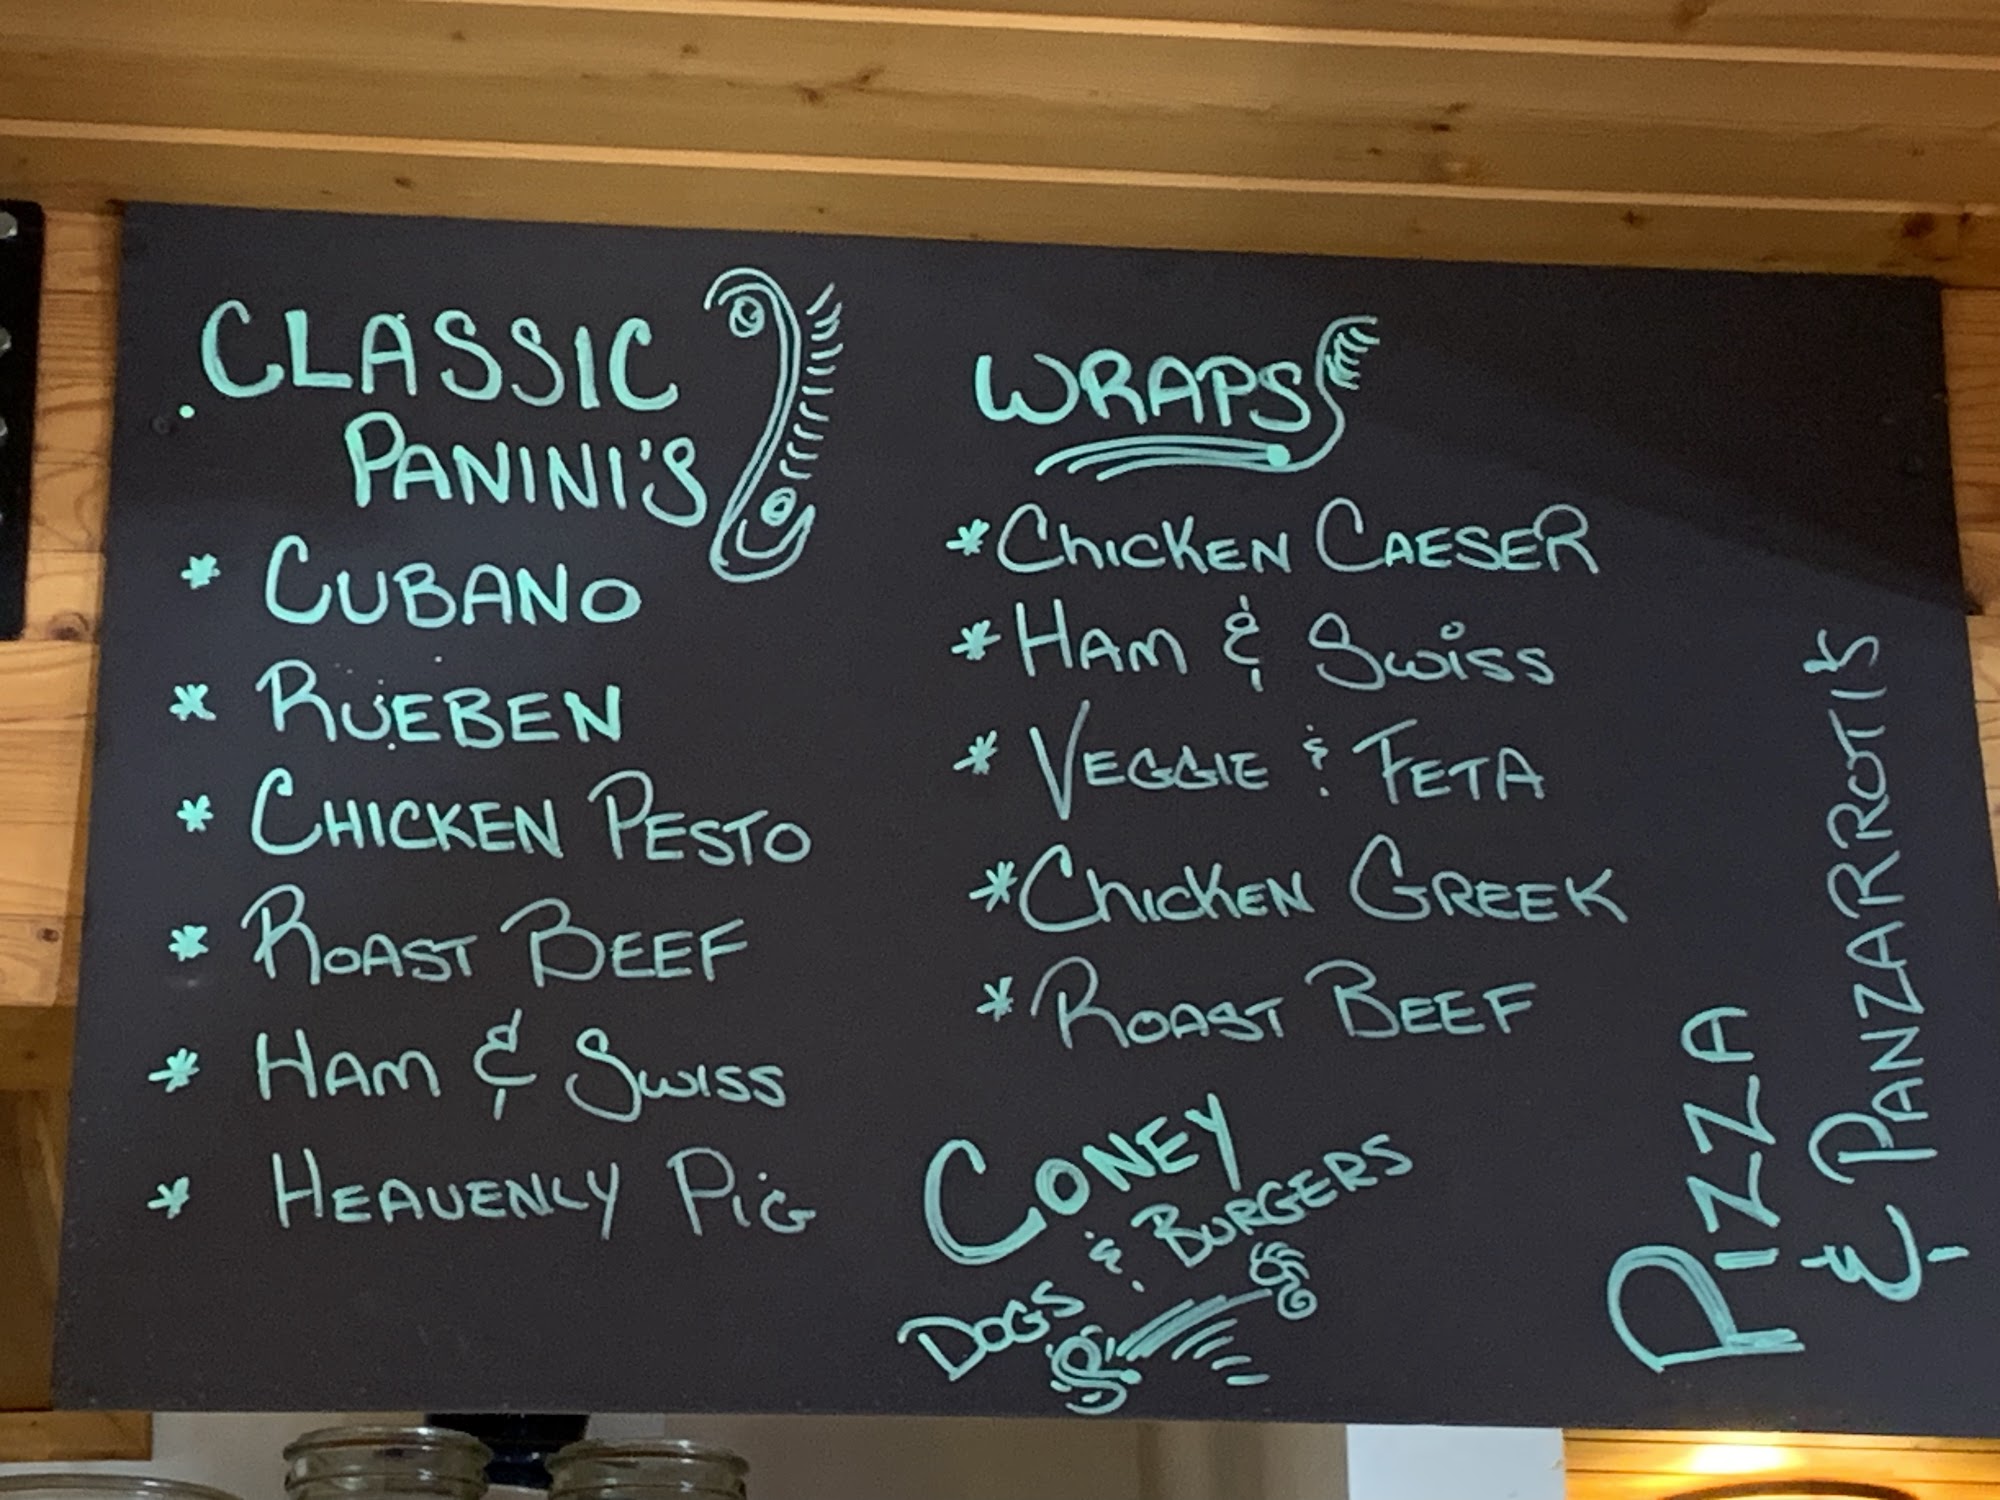 CLASSIC
PANINI'S
* CUBANO
* RUEBEN
* CHICKEN PESTO
* ROAST BEEF
* HAM & SWISS
* HEAVENLY PIG
WRAPS
* CHICKEN CAESER
* HAM & SWISS
* VEGGIE & FETA
* CHICKEN GREEK
* ROAST BEEF
CONEY
DOGS & BURGERS
PIZZA
& PANZARROTI'S